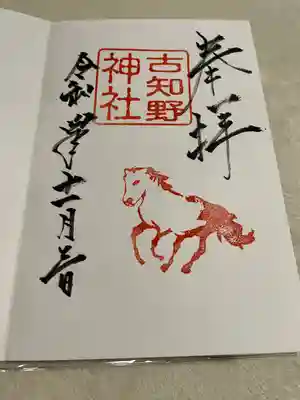 奉拝
古知野
神社
令和 十一月